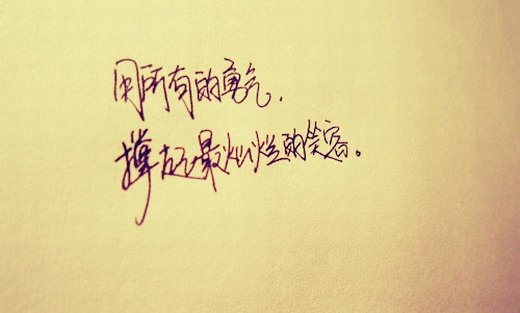 用所有的勇气,
撑起最灿烂的笑容。